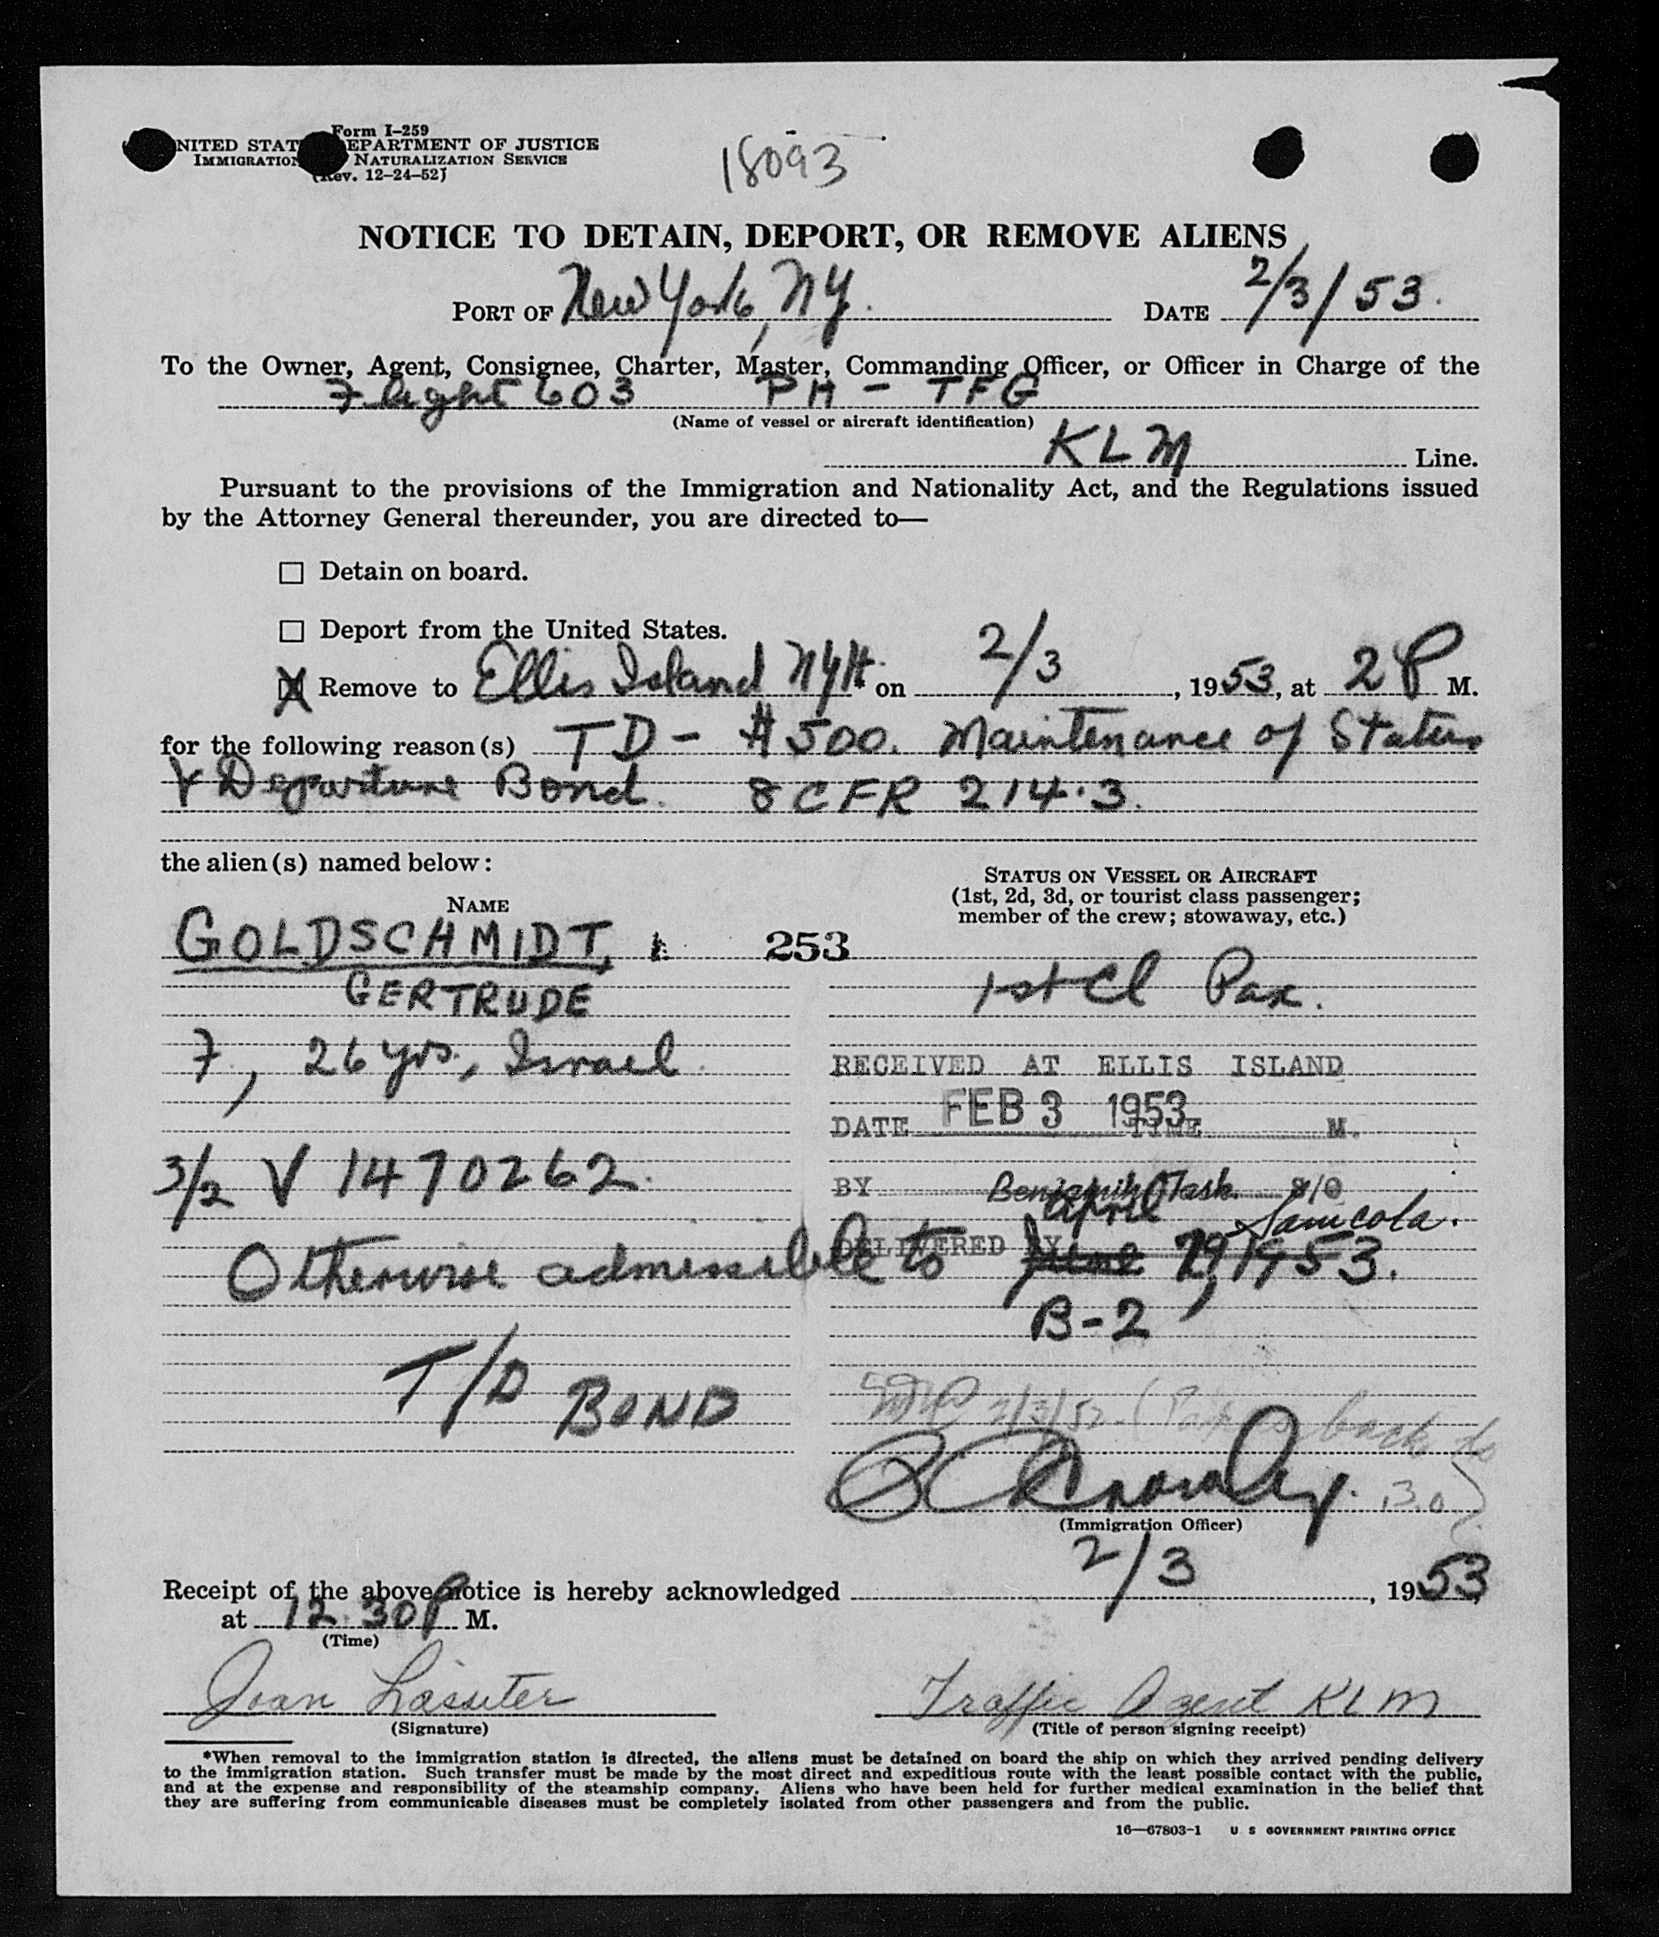 Form I-259
UNITED STATES DEPARTMENT OF JUSTICE
IMMIGRATION NATURALIZATION SERVICE
(Rev. 12-24-52)
18093
NOTICE TO DETAIN, DEPORT, OR REMOVE ALIENS
PORT OF New York, NY. DATE 2/3/53.
To the Owner, Agent, Consignee, Charter, Master, Commanding Officer, or Officer in Charge of the
Flight 603 PH - TFG
(Name of vessel or aircraft identification)
KLM Line.
Pursuant to the provisions of the Immigration and Nationality Act, and the Regulations issued
by the Attorney General thereunder, you are directed to—
☐ Detain on board.
☐ Deport from the United States.
☒ Remove to Ellis Island NYH.* on 2/3, 1953, at 2 P M.
for the following reason(s) TD - $500. Maintenance of Status
& Departure Bond. 8 CFR 214.3.
the alien(s) named below:
NAME
STATUS ON VESSEL OR AIRCRAFT
(1st, 2d, 3d, or tourist class passenger;
member of the crew; stowaway, etc.)
GOLDSCHMIDT, 253
GERTRUDE
1st Cl Pax.
F, 26 yrs., Israel
RECEIVED AT ELLIS ISLAND
DATE FEB 3 1953 TIME M.
3/2 V 1470262.
BY Benjamin Mask S/O
April Sanicola.
DELIVERED BY
Otherwise admissible to June 29, 1953.
B-2
T/D BOND
2/3/52 back to
B.O)
(Immigration Officer)
Receipt of the above notice is hereby acknowledged 2/3, 1953,
at 12.30 P M.
(Time)
Joan Lassiter Traffic Agent KLM
(Signature) (Title of person signing receipt)
*When removal to the immigration station is directed, the aliens must be detained on board the ship on which they arrived pending delivery
to the immigration station. Such transfer must be made by the most direct and expeditious route with the least possible contact with the public,
and at the expense and responsibility of the steamship company. Aliens who have been held for further medical examination in the belief that
they are suffering from communicable diseases must be completely isolated from other passengers and from the public.
16—67803-1 U S GOVERNMENT PRINTING OFFICE